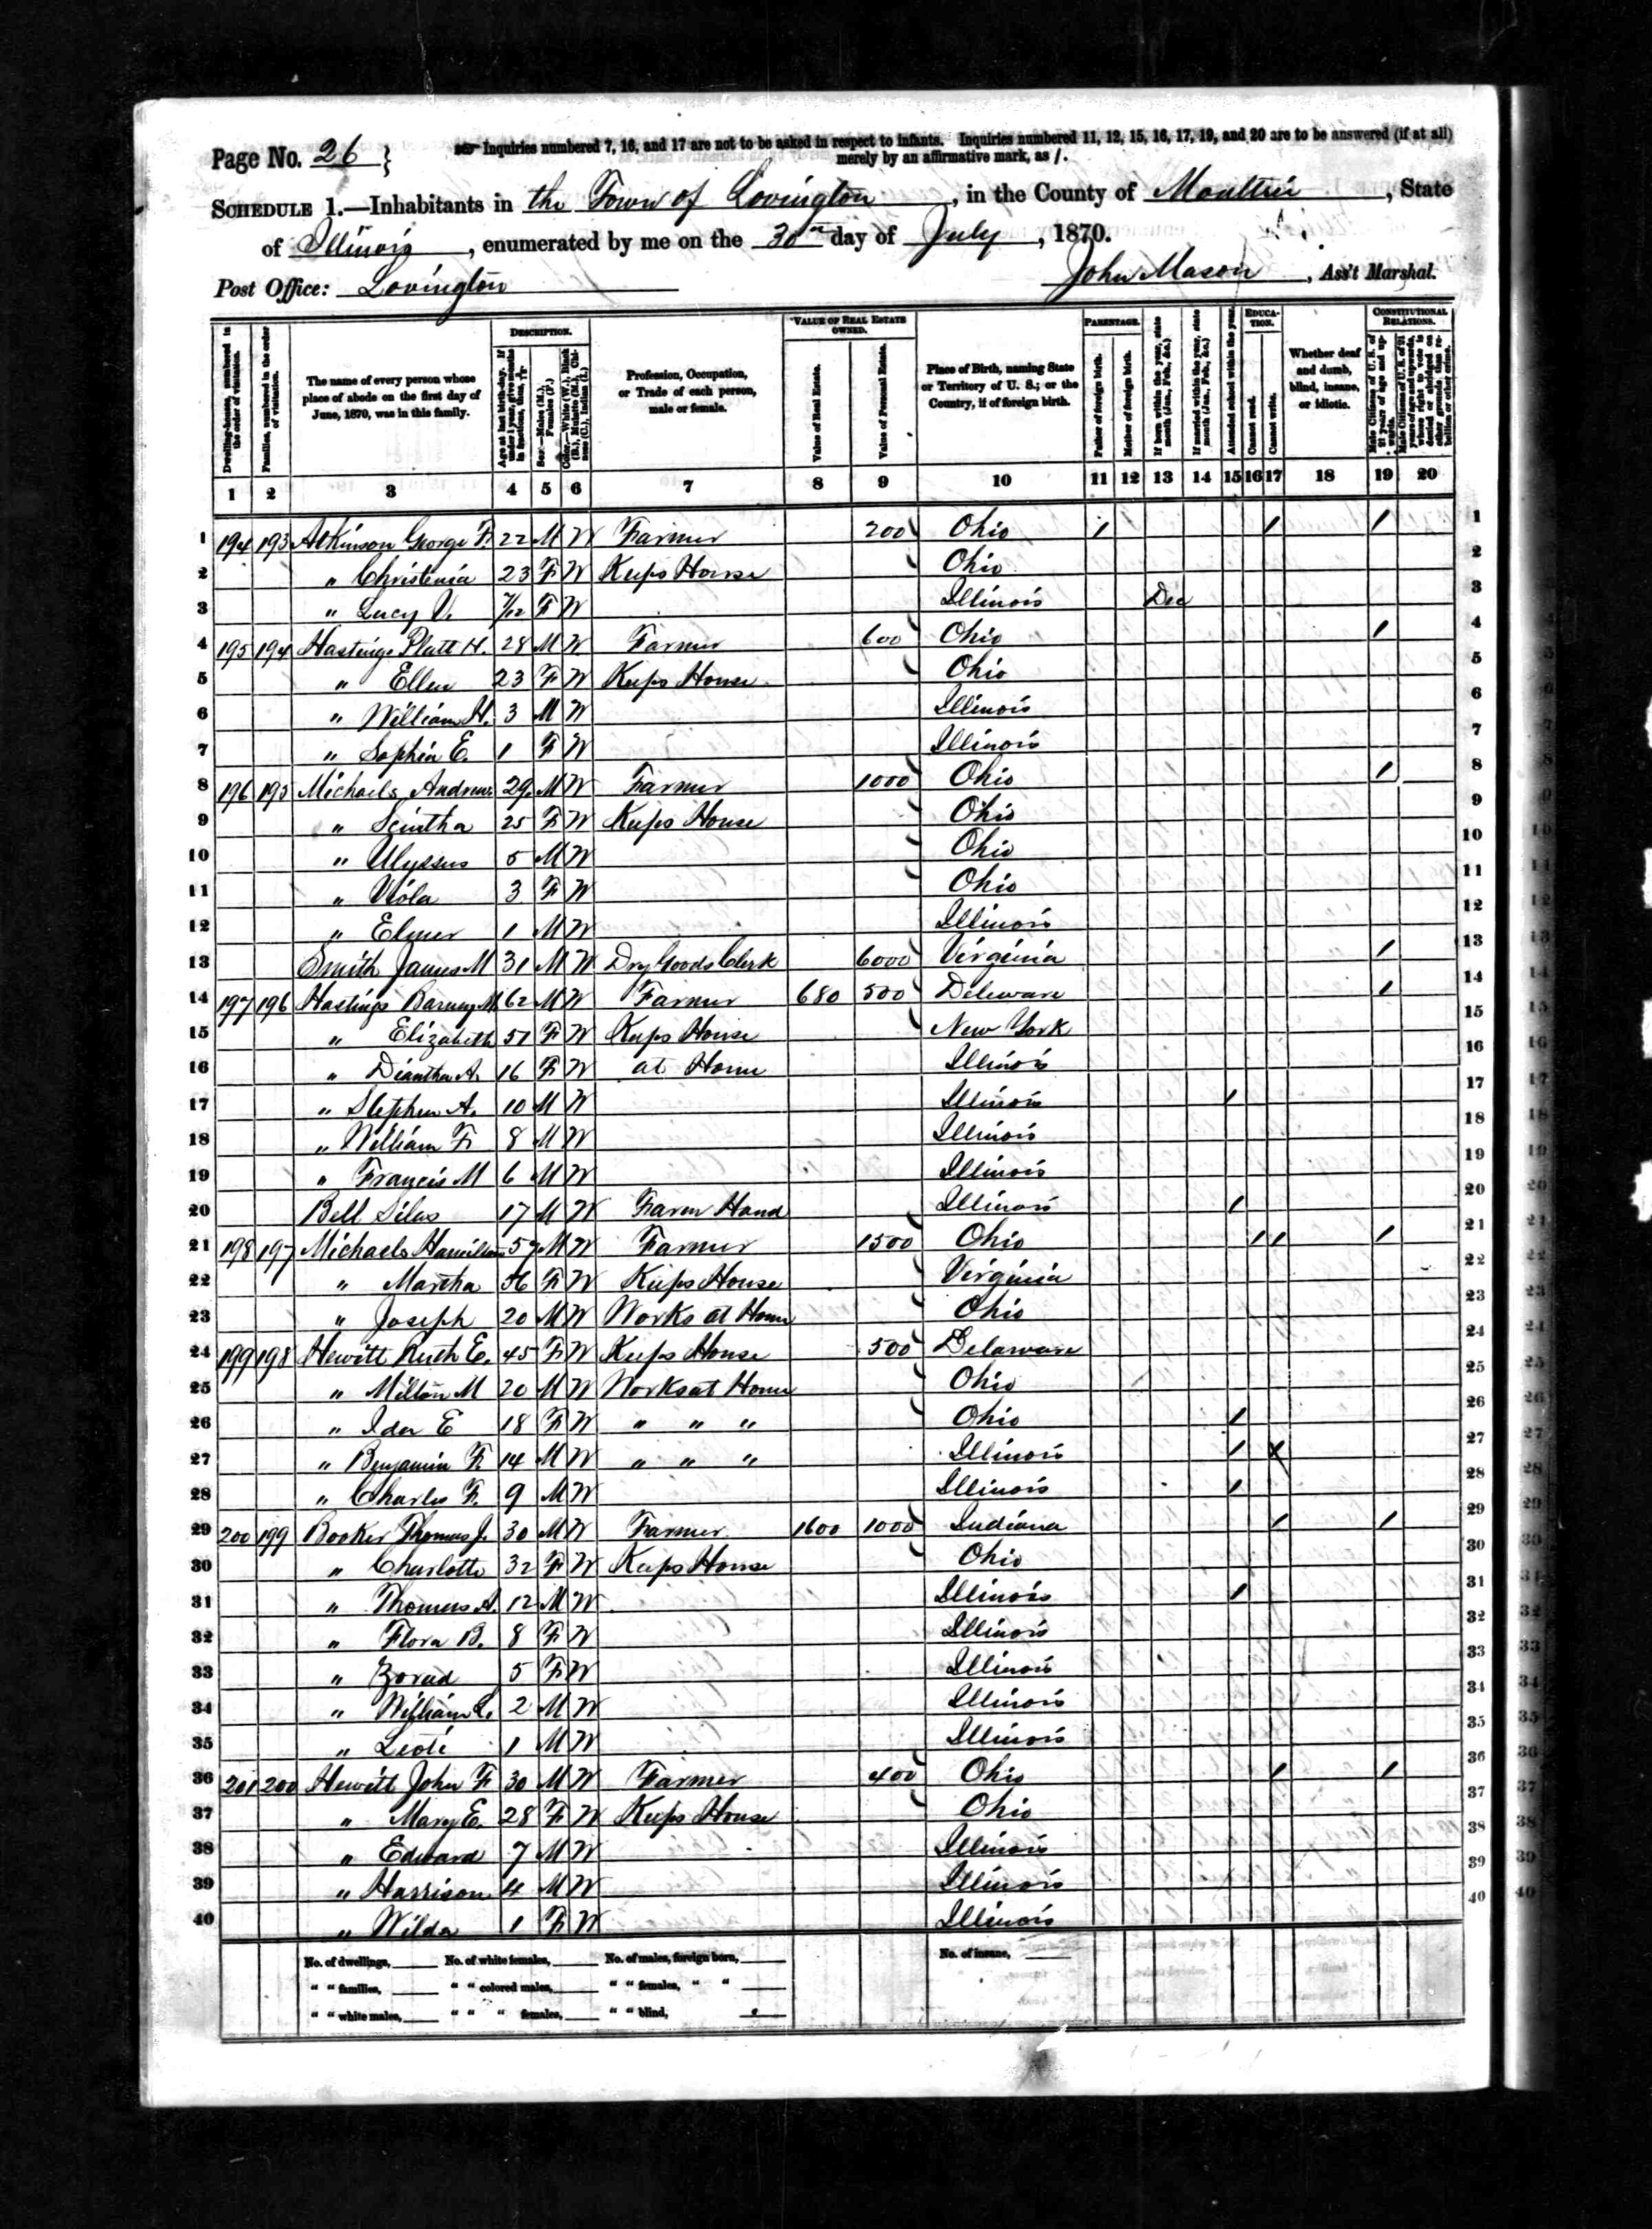 Page No. 26 } Inquiries numbered 7, 16, and 17 are not to be asked in respect to infants. Inquiries numbered 11, 12, 15, 16, 17, 19, and 20 are to be answered (if at all)
merely by an affirmative mark, as /.
SCHEDULE 1.—Inhabitants in the Town of Lovington, in the County of Moultrie, State
of Illinois, enumerated by me on the 30th day of July, 1870.
Post Office: Lovington John Mason, Ass't Marshal.
Dwelling-houses, numbered in the order of visitation.
Families, numbered in the order of visitation.
The name of every person whose place of abode on the first day of June, 1870, was in this family.
DESCRIPTION.
Age at last birth-day. If under 1 year, give months in fractions, thus, 3/12
Sex.—Males (M.), Females (F.)
Color.—White (W.), Black (B.), Mulatto (M.), Chinese (C.), Indian (I.)
Profession, Occupation, or Trade of each person, male or female.
VALUE OF REAL ESTATE OWNED.
Value of Real Estate.
Value of Personal Estate.
Place of Birth, naming State or Territory of U. S.; or the Country, if of foreign birth.
PARENTAGE.
Father of foreign birth.
Mother of foreign birth.
If born within the year, state month (Jan., Feb., &c.)
If married within the year, state month (Jan., Feb., &c.)
Attended school within the year.
EDUCATION.
Cannot read.
Cannot write.
Whether deaf and dumb, blind, insane, or idiotic.
CONSTITUTIONAL RELATIONS.
Male Citizens of U. S. of 21 years of age and upwards.
Male Citizens of U. S. of 21 years of age and upwards, whose right to vote is denied or abridged on other grounds than rebellion or other crime.
1 2 3 4 5 6 7 8 9 10 11 12 13 14 15 16 17 18 19 20
1 194 193 Atkinson George F. 22 M W Farmer 200 Ohio / / / 1
2 " Christenia 23 F W Keeps House Ohio 2
3 " Lucy V. 7/12 F W Illinois Dec 3
4 195 194 Hastings Platt H. 28 M W Farmer 600 Ohio / 4
5 " Ellen 23 F W Keeps House Ohio 5
6 " William H. 3 M W Illinois 6
7 " Sophia E. 1 F W Illinois 7
8 196 195 Michaels Andrew 29 M W Farmer 1000 Ohio / 8
9 " Scintha 25 F W Keeps House Ohio 9
10 " Ulyssus 5 M W Ohio 10
11 " Viola 3 F W Ohio 11
12 " Elmer 1 M W Illinois 12
13 Smith James M 31 M W Dry Goods Clerk 6000 Virginia / 13
14 197 196 Hastings Barney M. 62 M W Farmer 680 500 Deleware / 14
15 " Elizabeth 51 F W Keeps House New York 15
16 " Diantha A. 16 F W at Home Illinois 16
17 " Stephen A. 10 M W Illinois / 17
18 " William F. 8 M W Illinois 18
19 " Francis M 6 M W Illinois 19
20 Bell Silas 17 M W Farm Hand Illinois / 20
21 198 197 Michaels Hamilton 57 M W Farmer 1500 Ohio / / / 21
22 " Martha 56 F W Keeps House Virginia 22
23 " Joseph 20 M W Works at Home Ohio 23
24 199 198 Hewitt Ruth E. 45 F W Keeps House 500 Delaware 24
25 " Milton M 20 M W Works at Home Ohio 25
26 " Ida E 18 F W " " " Ohio / 26
27 " Benjamin F. 14 M W " " " Illinois / X 27
28 " Charles F. 9 M W Illinois / 28
29 200 199 Booker Thomas J. 30 M W Farmer 1600 1000 Indiana / / 29
30 " Charlotte 32 F W Keeps House Ohio 30
31 " Thomas A. 12 M W Illinois / 31
32 " Flora B. 8 F W Illinois 32
33 " 5 F W Illinois 33
34 " William L. 2 M W Illinois 34
35 " 1 M W Illinois 35
36 201 200 Hewitt John F 30 M W Farmer 400 Ohio / / 36
37 " Mary E. 28 F W Keeps House Ohio 37
38 " Edward 7 M W Illinois 38
39 " Harrison 4 M W Illinois 39
40 " Wilda 1 F W Illinois 40
No. of dwellings, No. of white females, No. of males, foreign born, No. of insane,
" " families, " " colored males, " " females, " "
" " white males, " " " females, " " blind,